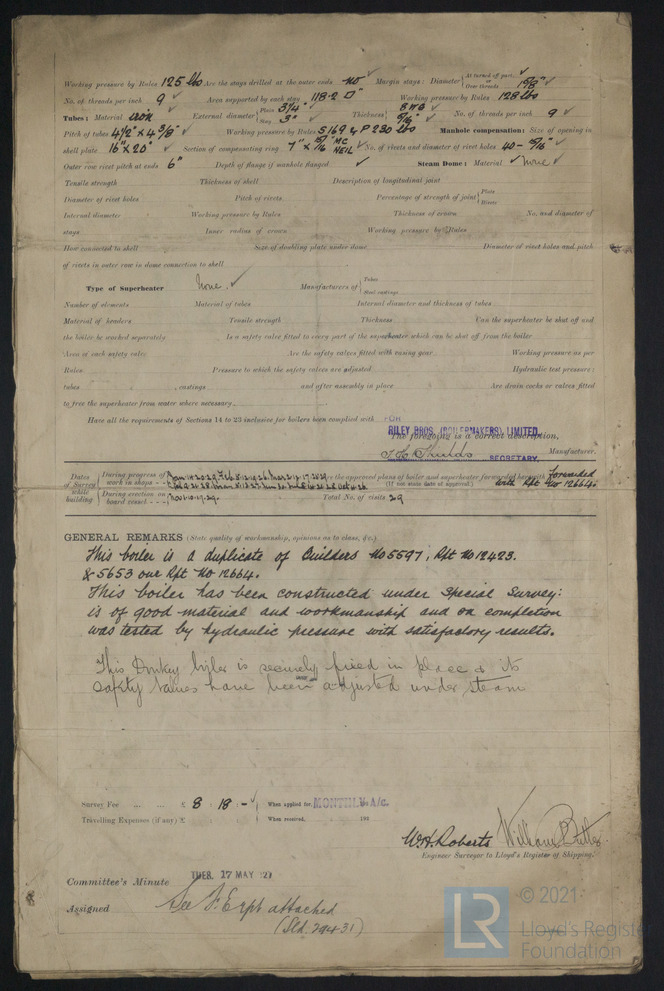 Working pressure by Rules 125 lbs Are the stays drilled at the outer ends no Margin stays: Diameter { At turned off part, or Over threads 1 5/8"
No. of threads per inch 9 Area supported by each stay 118.2 □" Working pressure by Rules 128 lbs
Tubes: Material iron External diameter { Plain 3 1/4" Stay 3" Thickness { 8 WG 5/16" No. of threads per inch 9
Pitch of tubes 4 1/2" x 4 3/8" Working pressure by Rules S 169 & P 230 lbs Manhole compensation: Size of opening in
shell plate 16" x 20" Section of compensating ring No. of rivets and diameter of rivet holes 40 - 15/16"
Outer row rivet pitch at ends 6" Depth of flange if manhole flanged Steam Dome: Material None
Tensile strength Thickness of shell Description of longitudinal joint
Diameter of rivet holes Pitch of rivets Percentage of strength of joint { Plate Rivets
Internal diameter Working pressure by Rules Thickness of crown No. and diameter of
stays Inner radius of crown Working pressure by Rules
How connected to shell Size of doubling plate under dome Diameter of rivet holes and pitch
of rivets in outer row in dome connection to shell
Type of Superheater None. Manufacturers of { Tubes Steel castings
Number of elements Material of tubes Internal diameter and thickness of tubes
Material of headers Tensile strength Thickness Can the superheater be shut off and
the boiler be worked separately Is a safety valve fitted to every part of the superheater which can be shut off from the boiler
Area of each safety valve Are the safety valves fitted with easing gear Working pressure as per
Rules Pressure to which the safety valves are adjusted Hydraulic test pressure:
tubes , castings and after assembly in place Are drain cocks or valves fitted
to free the superheater from water where necessary
Have all the requirements of Sections 14 to 23 inclusive for boilers been complied with
FOR
RILEY BROS. (BOILERMAKERS) LIMITED.
The foregoing is a correct description,
SECRETARY. Manufacturer.
Dates of Survey while building { During progress of work in shops - - the approved plans of boiler and superheater forwarded herewith Forwarded
(If not state date of approval.) with Rpt No 12664.
During erection on board vessel - - - Nov. 10.19.29. Total No. of visits 29
GENERAL REMARKS (State quality of workmanship, opinions as to class, &c.)
This boiler is a duplicate of Builders No 5597, Rpt No 12423.
& 5653 our Rpt No 12664.
This boiler has been constructed under Special Survey:
is of good material and workmanship and on completion
was tested by hydraulic pressure with satisfactory results.
This Donkey boiler is securely fixed in place & its
safety valves have been adjusted under steam
Survey Fee ... ... £ 8 : 18 : - When applied for, MONTHLY A/c.
Travelling Expenses (if any) £ : : When received, 192
W.H. Roberts William Butler
Engineer Surveyor to Lloyd's Register of Shipping.
Committee's Minute TUES. 17 MAY
Assigned See F.E. rpt attached
© 2021
LR Lloyd's Register
Foundation